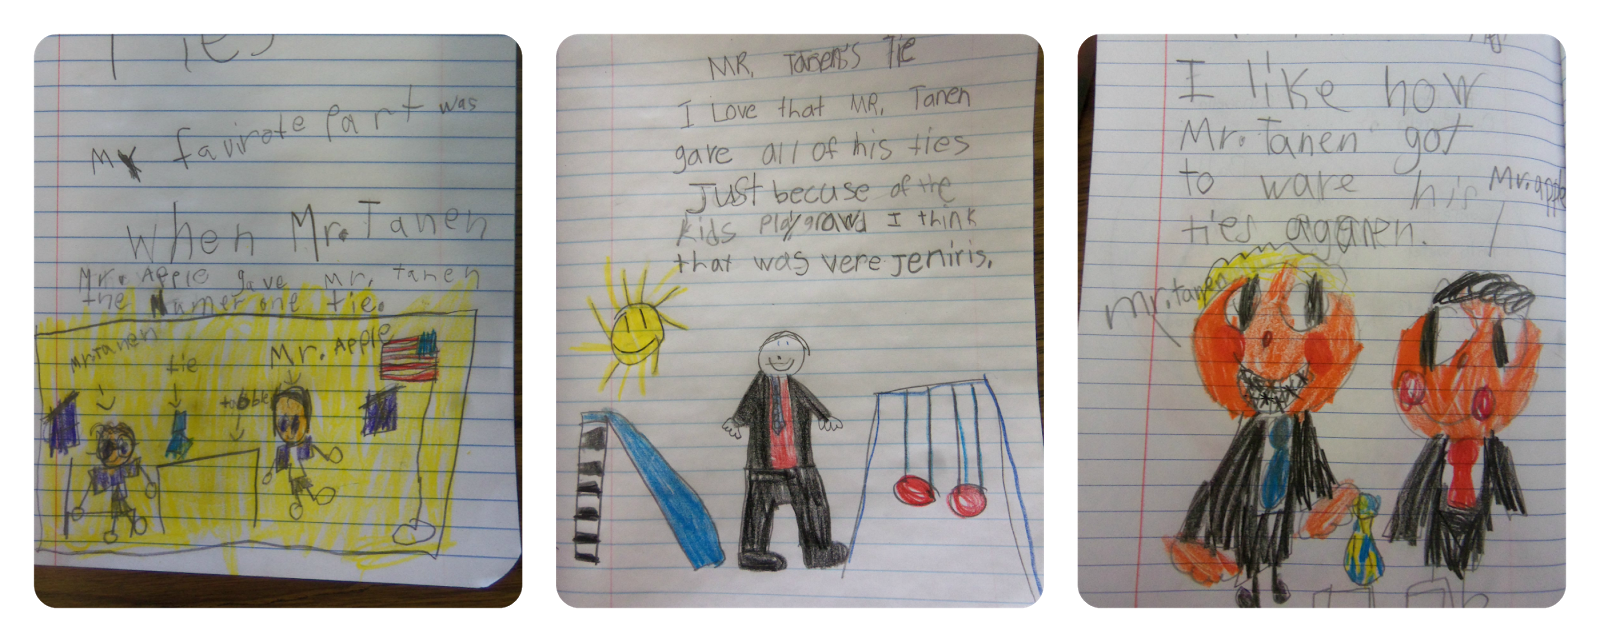 Ties
My favirote part was
when Mr. Tanen
Mr. Apple gave Mr. tanen
the Numer one tie.
Mr. Tanen
tie
tabble
Mr. Apple
MR. Tanen's Tie
I Love that MR. Tanen
gave all of his ties
Just becuse of the
kids playgrawd I think
that was vere jeniris.
I like how
Mr. Tanen got
to ware his
ties agganen.
Mr. apple
Mr. tanen